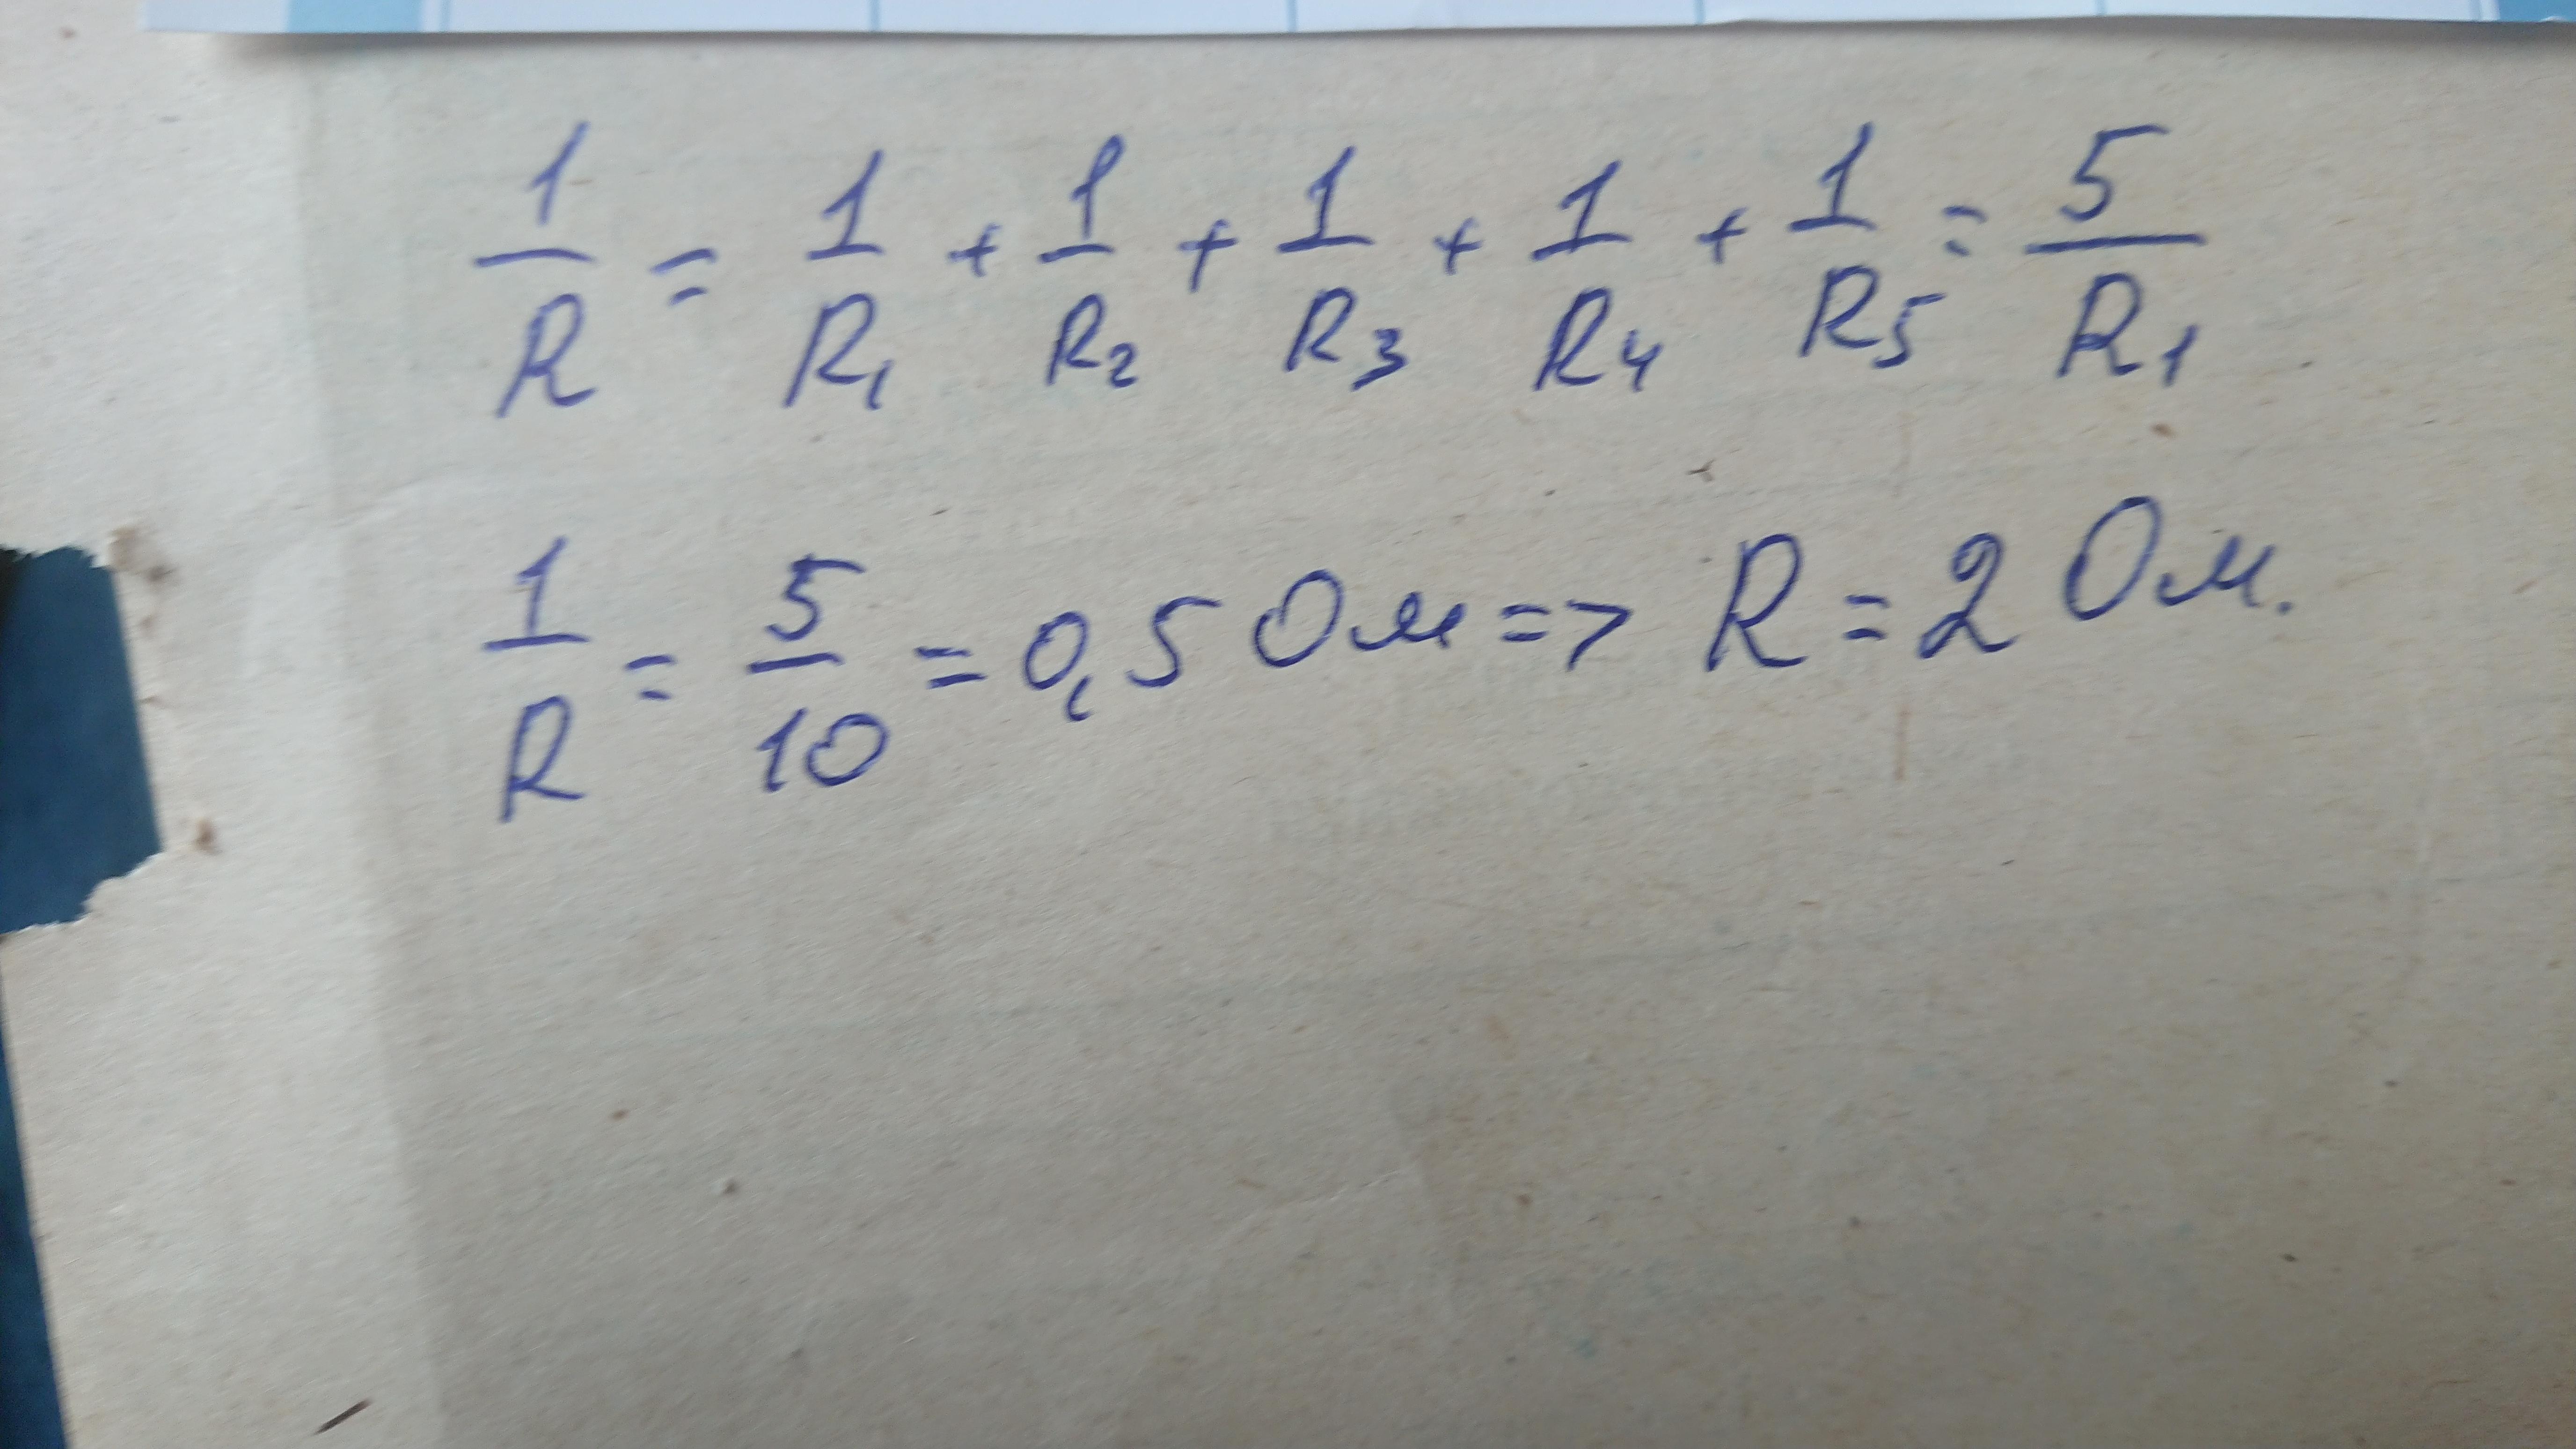 1/R = 1/R₁ + 1/R₂ + 1/R₃ + 1/R₄ + 1/R₅ = 5/R₁
1/R = 5/10 = 0,5 Ом => R = 2 Ом.